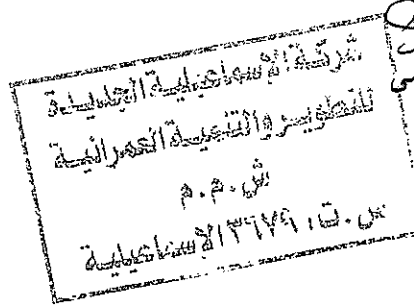 شركة الإسماعيلية الجديدة
للتطوير والتنمية العمرانية
ش.م.م
س.ت. ٣٦٧٤٩ الإسماعيلية